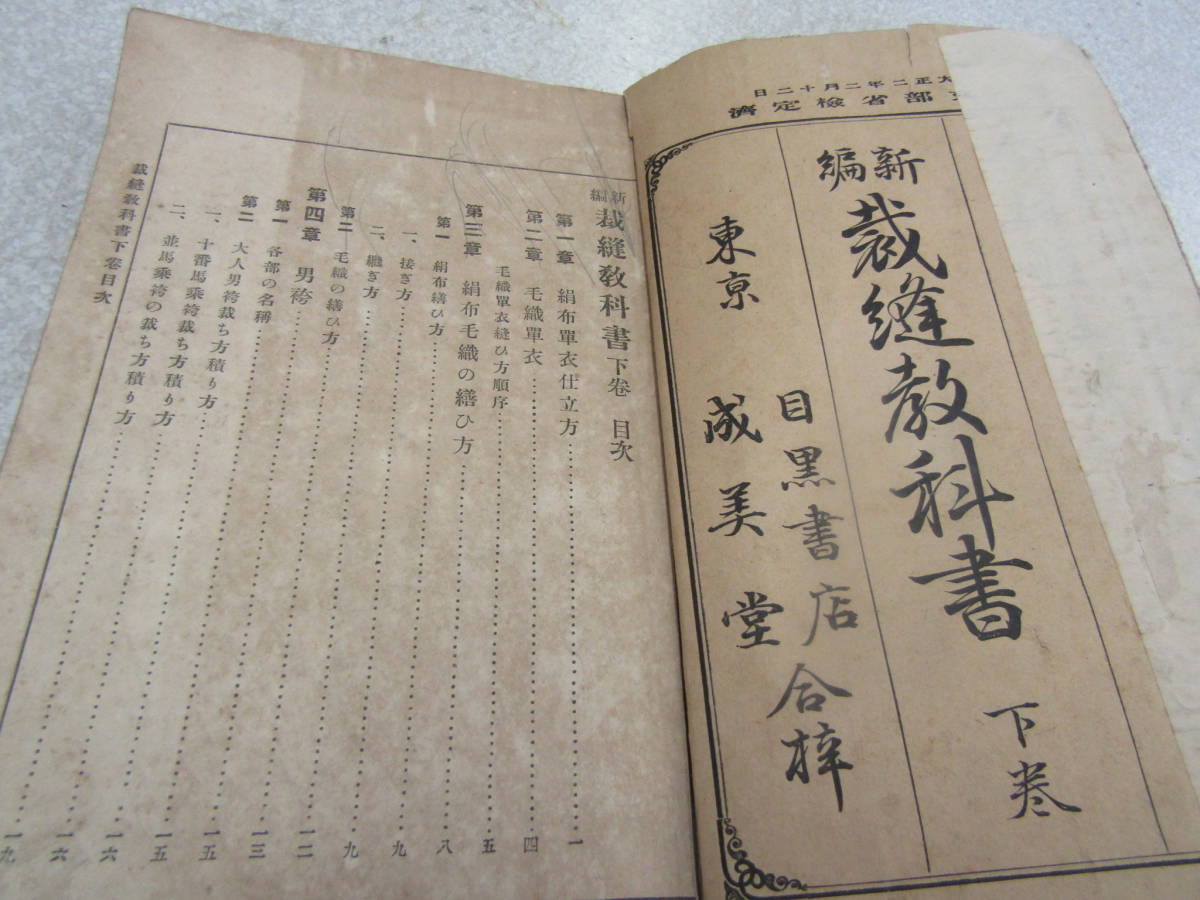 大正二年二月十二日
文部省檢定濟
新編 裁縫教科書 下卷
目黒書店合梓
東京 成美堂
新編 裁縫敎科書 下卷 目次
第一章 絹布單衣仕立方…一
第二章 毛織單衣…四
毛織單衣縫ひ方順序…五
第三章 絹布毛織の繕ひ方…八
第一 絹布繕ひ方…九
一、接ぎ方…九
二、繼ぎ方…一二
第二 毛織の繕ひ方…一三
第四章 男袴…一五
第一 各部の名稱…一五
第二 大人男袴裁ち方積り方…一六
一、十番馬乘袴裁ち方積り方…一六
二、並馬乘袴の裁ち方積り方…一九
裁縫敎科書下卷目次